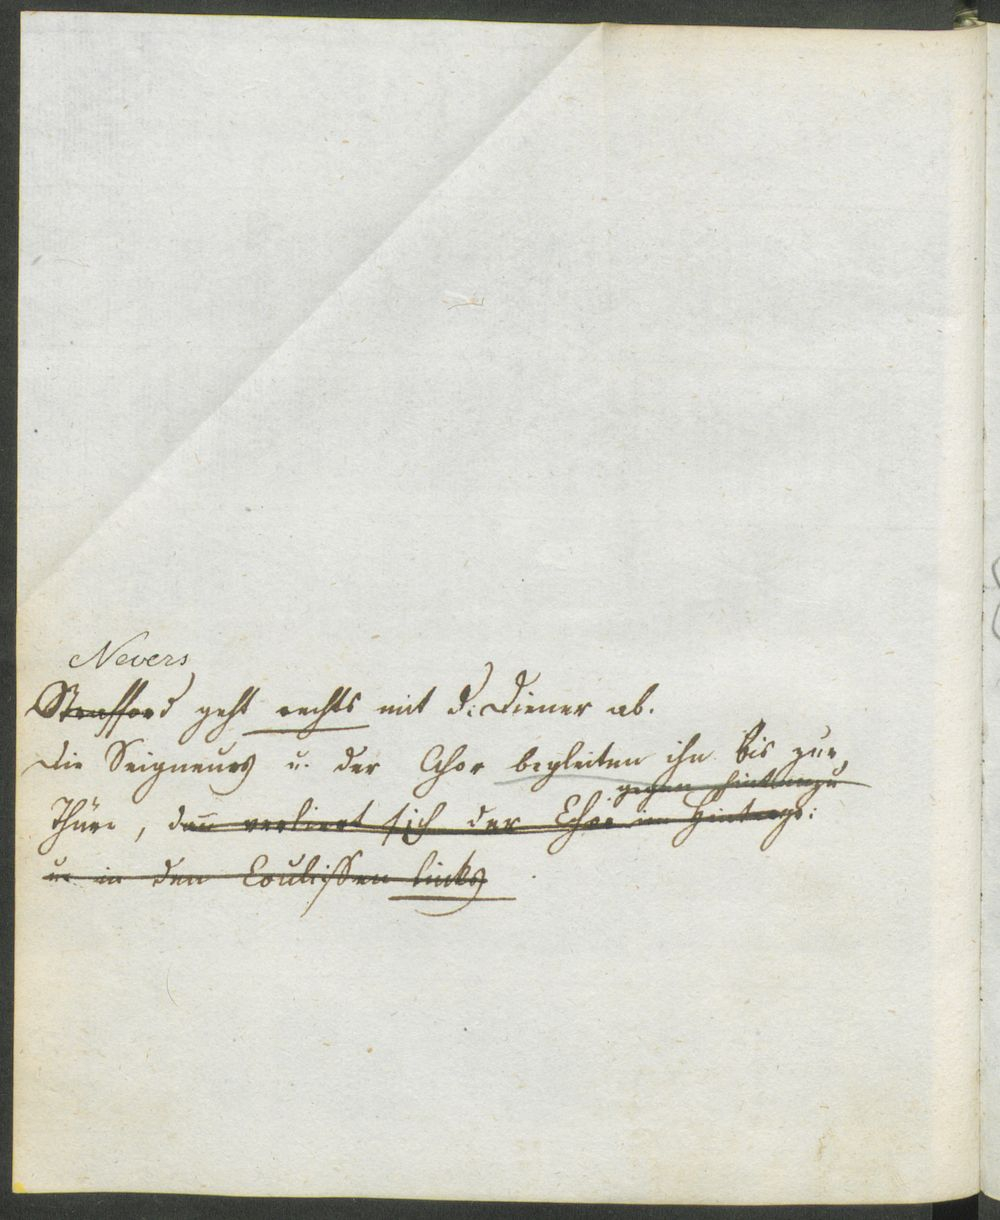 Nevers
Strafford geht rechts mit d: Diener ab.
Die Seigneurs u. der Chor begleiten ihn bis zur
gegen
Thüre, dann verliert sich der Chor im Hintergr:
u: in den Coulissen links